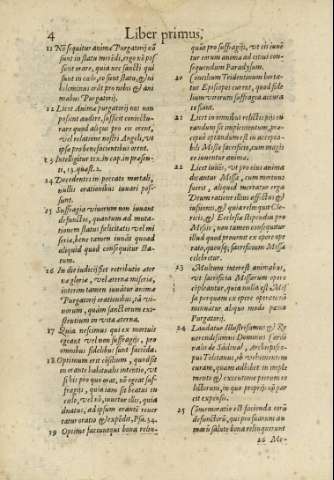 4 Liber primus,
11 Nõ sequitur anima Purgatorij nõ
sunt in statu merēdi, ergo nõ pos
sunt orare, quia nec sancti qui
sunt in cœlo, eo sunt statu, & ni
hilominus orāt pro nobis & ani
mabus Purgatorij.
12 Licet Animæ purgatorij nos non
possent audire, sufficit coniectu-
rare quod aliquis pro eis orent,
vel relatione nostri Angeli, vt
ipsæ pro benefacientibus orent.
13 Intelligitur tex. in cap. in præsen-
ti, 13. quæst. 2.
14 Decedentes in peccato mortali,
nullis orationibus iuuari pos-
sunt.
15 Suffragia viuorum non iuuant
defunctos, quantum ad muta-
tionem status felicitatis vel mi
seriæ, bene tamen iuuāt quoad
aliquid quod consequitur sta-
tum.
16 In die iudicij fiet retributio æter
næ gloriæ, vel æternæ miseriæ,
interim tamen iuuātur animæ
Purgatorij orationibus, tā vi-
uorum, quàm sanctorum exi-
stentium in vita æterna.
17 Quia nescimus qui ex mortuis
egeant vel non suffragijs, pro
omnibus fidelibus sunt facienda.
18 Optimum erit cōsilium, quod se
in orante habitualis intentio, vt
si his pro quo orat, nō egeat suf-
fragijs, quia iam se beatus in
cœlo, vel nō, iuuetur illis, quia
dānatus, ad ipsum orantē reuer
tatur oratio & expedit, Psa. 34.
19 Optime faciuntque bona relin-
quūt pro suffragijs, vt eis iuuē
tur eorum anima ad citius con-
sequendum Paradysum.
20 Concilium Tridentinum horta-
tur Episcopi curent, quod fide
lium viuorum suffragia accura
te fiant.
21 Licet in omnibus relictis pijs cu
randum sit implementum, præ-
cipuè attendendum est in accepta-
bili Missæ sacrificio, cum magis
eo iuuentur anima.
22 Licet iustius, vt pro eius anima
dicantur Missæ, cum mortuus
fuerit, aliquid moriatur erga
Deum ratione illius affectus &
iussionis, & quia relinquit Cle-
ricis, & Ecclesiæ stipendia pro
Missis, non tamen consequitur
illud quod prouenit ex opere ope
rato, quousque sacrificium Missæ
celebretur.
23 Multum interest animabus,
vt sacrificia Missarum opere
cōpleantur, quia nulla est Mis-
sa per quam ex opere operato nō
iuuentur, aliquo modo pœna
Purgatorij.
24 Laudatur Illustrissimus & Re
uerendissimus Dominus Cardi
nalis de Sandoual, Archiepisco-
pus Toletanus, ob vehementem
curam, quam adhibet in imple
mento & executione piorum re
lictorum, in quo proprijs nō par
cit expensis.
25 Commemoratio est facienda eorū
defunctorū, qui pro suarū ani
marū salute bona relinquerunt
26 Me-